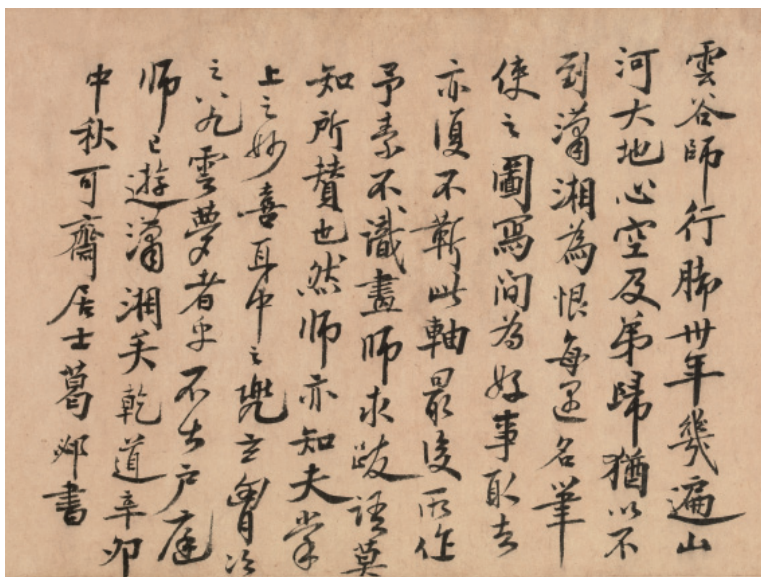 雲谷師行脚卅年幾遍山
河大地心空及第歸猶以不
到瀟湘為恨每遇名筆
使之圖寫間為好事取去
亦復不靳此軸最後所作
予素不識畫師求跋語莫
知所贊也然師亦知夫掌
上之妙喜耳中之兜玄胷次
之八九雲夢者乎不出户庭
師已遊瀟湘矣乾道辛卯
中秋可齋居士葛郯書